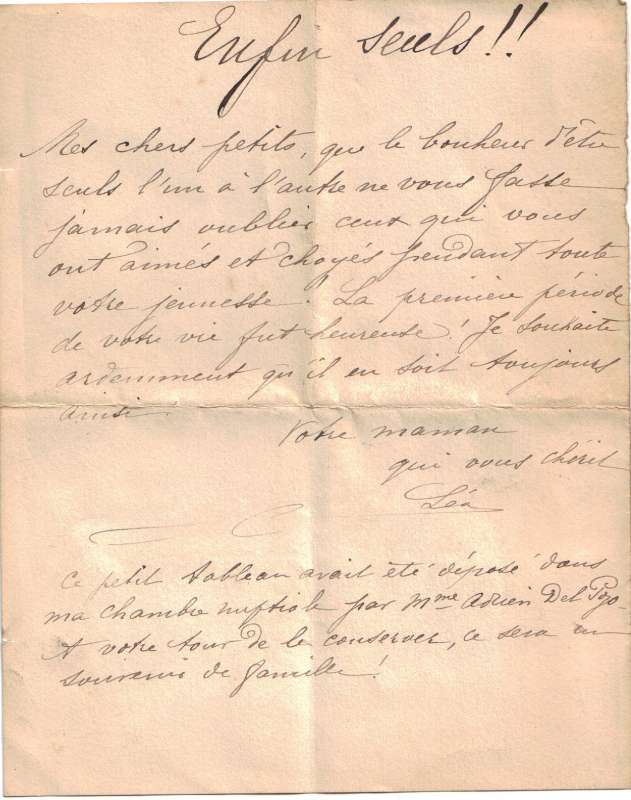 Enfin seuls!!
Mes chers petits, que le bonheur d'être
seuls l'un à l'autre ne vous fasse
jamais oublier ceux qui vous
ont aimés et choyés pendant toute
votre jeunesse! La première période
de votre vie fut heureuse! Je souhaite
ardemment qu'il en soit toujours
ainsi.
Votre maman
qui vous chérit
Léa
Ce petit tableau avait été déposé dans
ma chambre nuptiale par Mme Adrien Del Pozo.
A votre tour de le conserver, ce sera un
souvenir de famille!